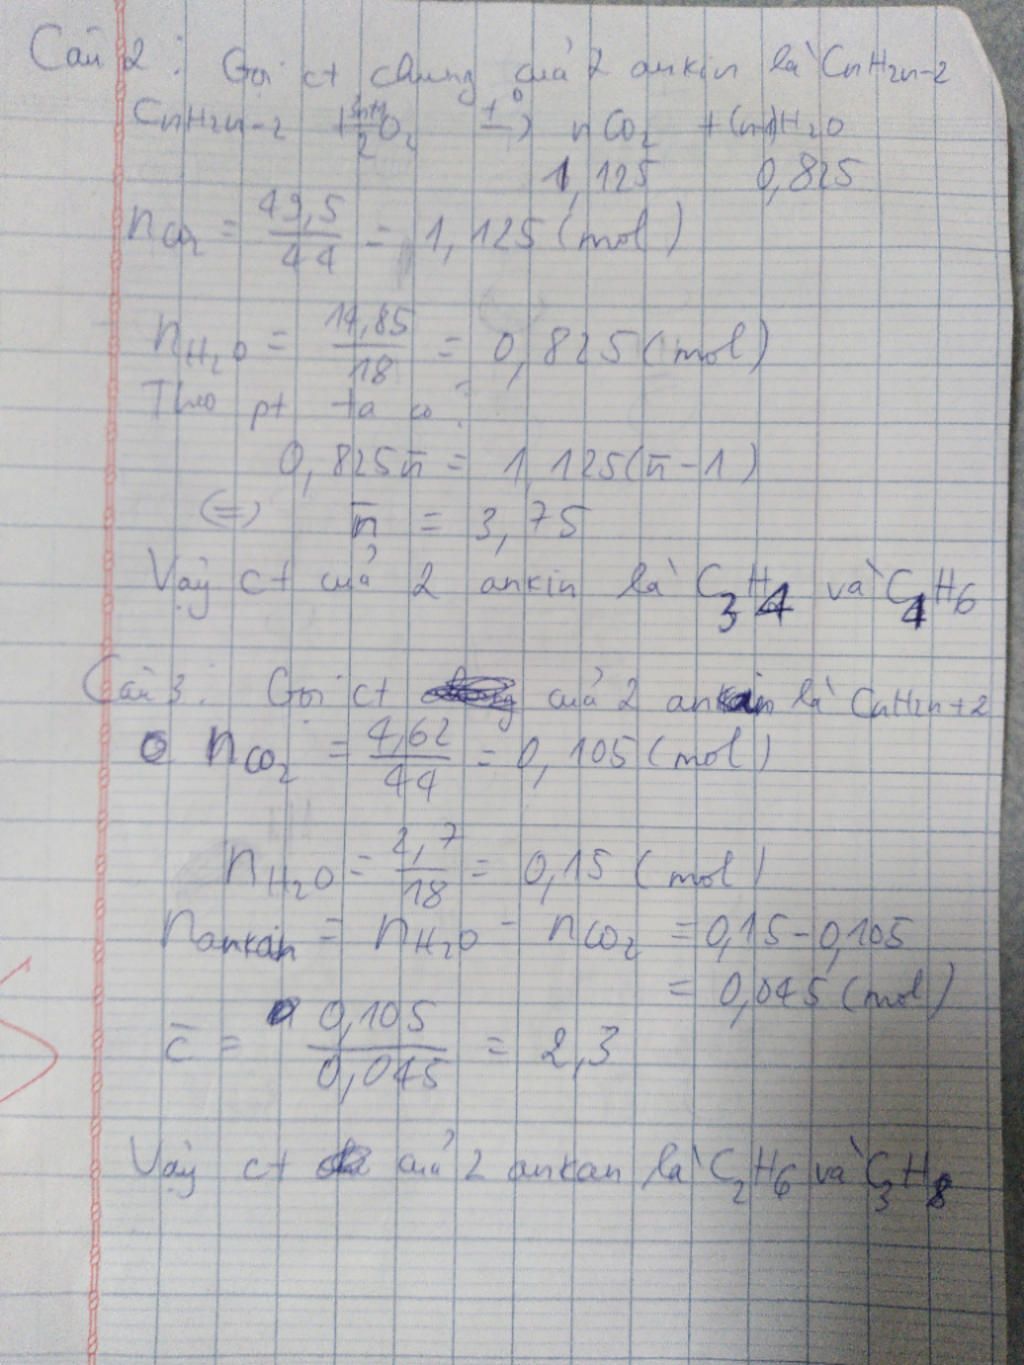 Câu 2: Gọi ct chung của 2 ankin là CnH2n-2
CnH2n-2 + (3n-1)/2 O2 -t°-> nCO2 + (n-1)H2O
1,125 0,825
nCO2 = 49,5/44 = 1,125 (mol)
nH2O = 14,85/18 = 0,825 (mol)
Theo pt ta có:
0,825n̄ = 1,125(n̄ - 1)
(=) n̄ = 3,75
Vậy ct của 2 ankin là C3H4 và C4H6
Câu 3: Gọi ct của 2 ankan là CnH2n+2
nCO2 = 4,62/44 = 0,105 (mol)
nH2O = 2,7/18 = 0,15 (mol)
nankan = nH2O - nCO2 = 0,15 - 0,105
= 0,045 (mol)
c̄ = 0,105/0,045 = 2,3
Vậy ct của 2 ankan là C2H6 và C3H8